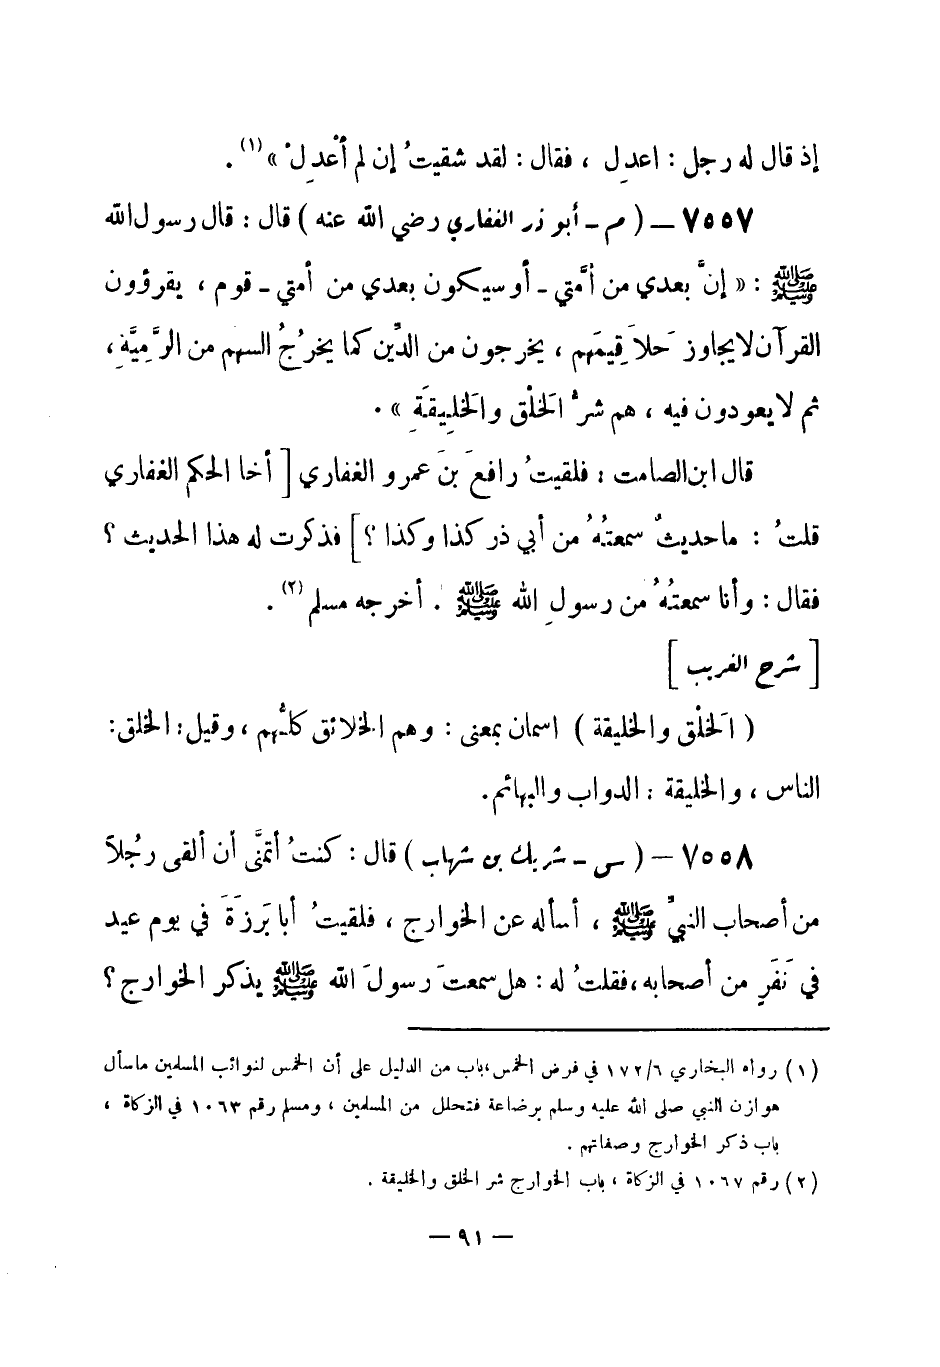 إذ قال له رجل : اعدِل ، فقال : لقد شقيتُ إن لم أعْدِلْ »(١) .
٧٥٥٧ – ( م – أبو ذر الغفاري رضي الله عنه ) قال : قال رسول الله
ﷺ : « إنَّ بعدي من أُمَّتي – أو سيكون بعدي من أمتي – قوم ، يقرؤون
القرآن لا يجاوز حَلاَقِيمَهم ، يخرجون من الدِّين كما يخرُجُ السهم من الرَّمِيَّةِ ،
ثم لا يعودون فيه ، هم شرُّ الَخلْق والَخلِيقَةِ » .
قال ابن الصامت : فلقيتُ رافعَ بنَ عمرو الغفاري [ أخا الحكم الغفاري
قلتُ : ما حديثٌ سمعتُهُ من أبي ذر كذا وكذا ؟ ] فذكرت له هذا الحديث ؟
فقال : وأنا سمعتُهُ من رسولِ الله ﷺ . أخرجه مسلم (٢) .
[ شرح الغريب ]
( الَخلْق والخليقة ) اسمان بمعنى : وهم الخلائق كلُّهم ، وقيل : الخلق :
الناس ، والخليقة : الدواب والبهائم .
٧٥٥٨ – ( س – شريك بن شهاب ) قال : كنتُ أتمنَّى أن ألقى رجُلاً
من أصحاب النبيِّ ﷺ ، أسأله عن الخوارج ، فلقيتُ أبا بَرزَةَ في يوم عيد
في نَفَرٍ من أصحابه ، فقلتُ له : هل سمعتَ رسولَ الله ﷺ يذكر الخوارج ؟
(١) رواه البخاري ٦/١٧٢ في فرض الخمس ، باب من الدليل على أن الخمس لنوائب المسلمين ما سأل
هوازن النبي صلى الله عليه وسلم برضاعة فتحلل من المسلمين ، ومسلم رقم ١٠٦٣ في الزكاة ،
باب ذكر الخوارج وصفاتهم .
(٢) رقم ١٠٦٧ في الزكاة ، باب الخوارج شر الخلق والخليقة .
– ٩١ –